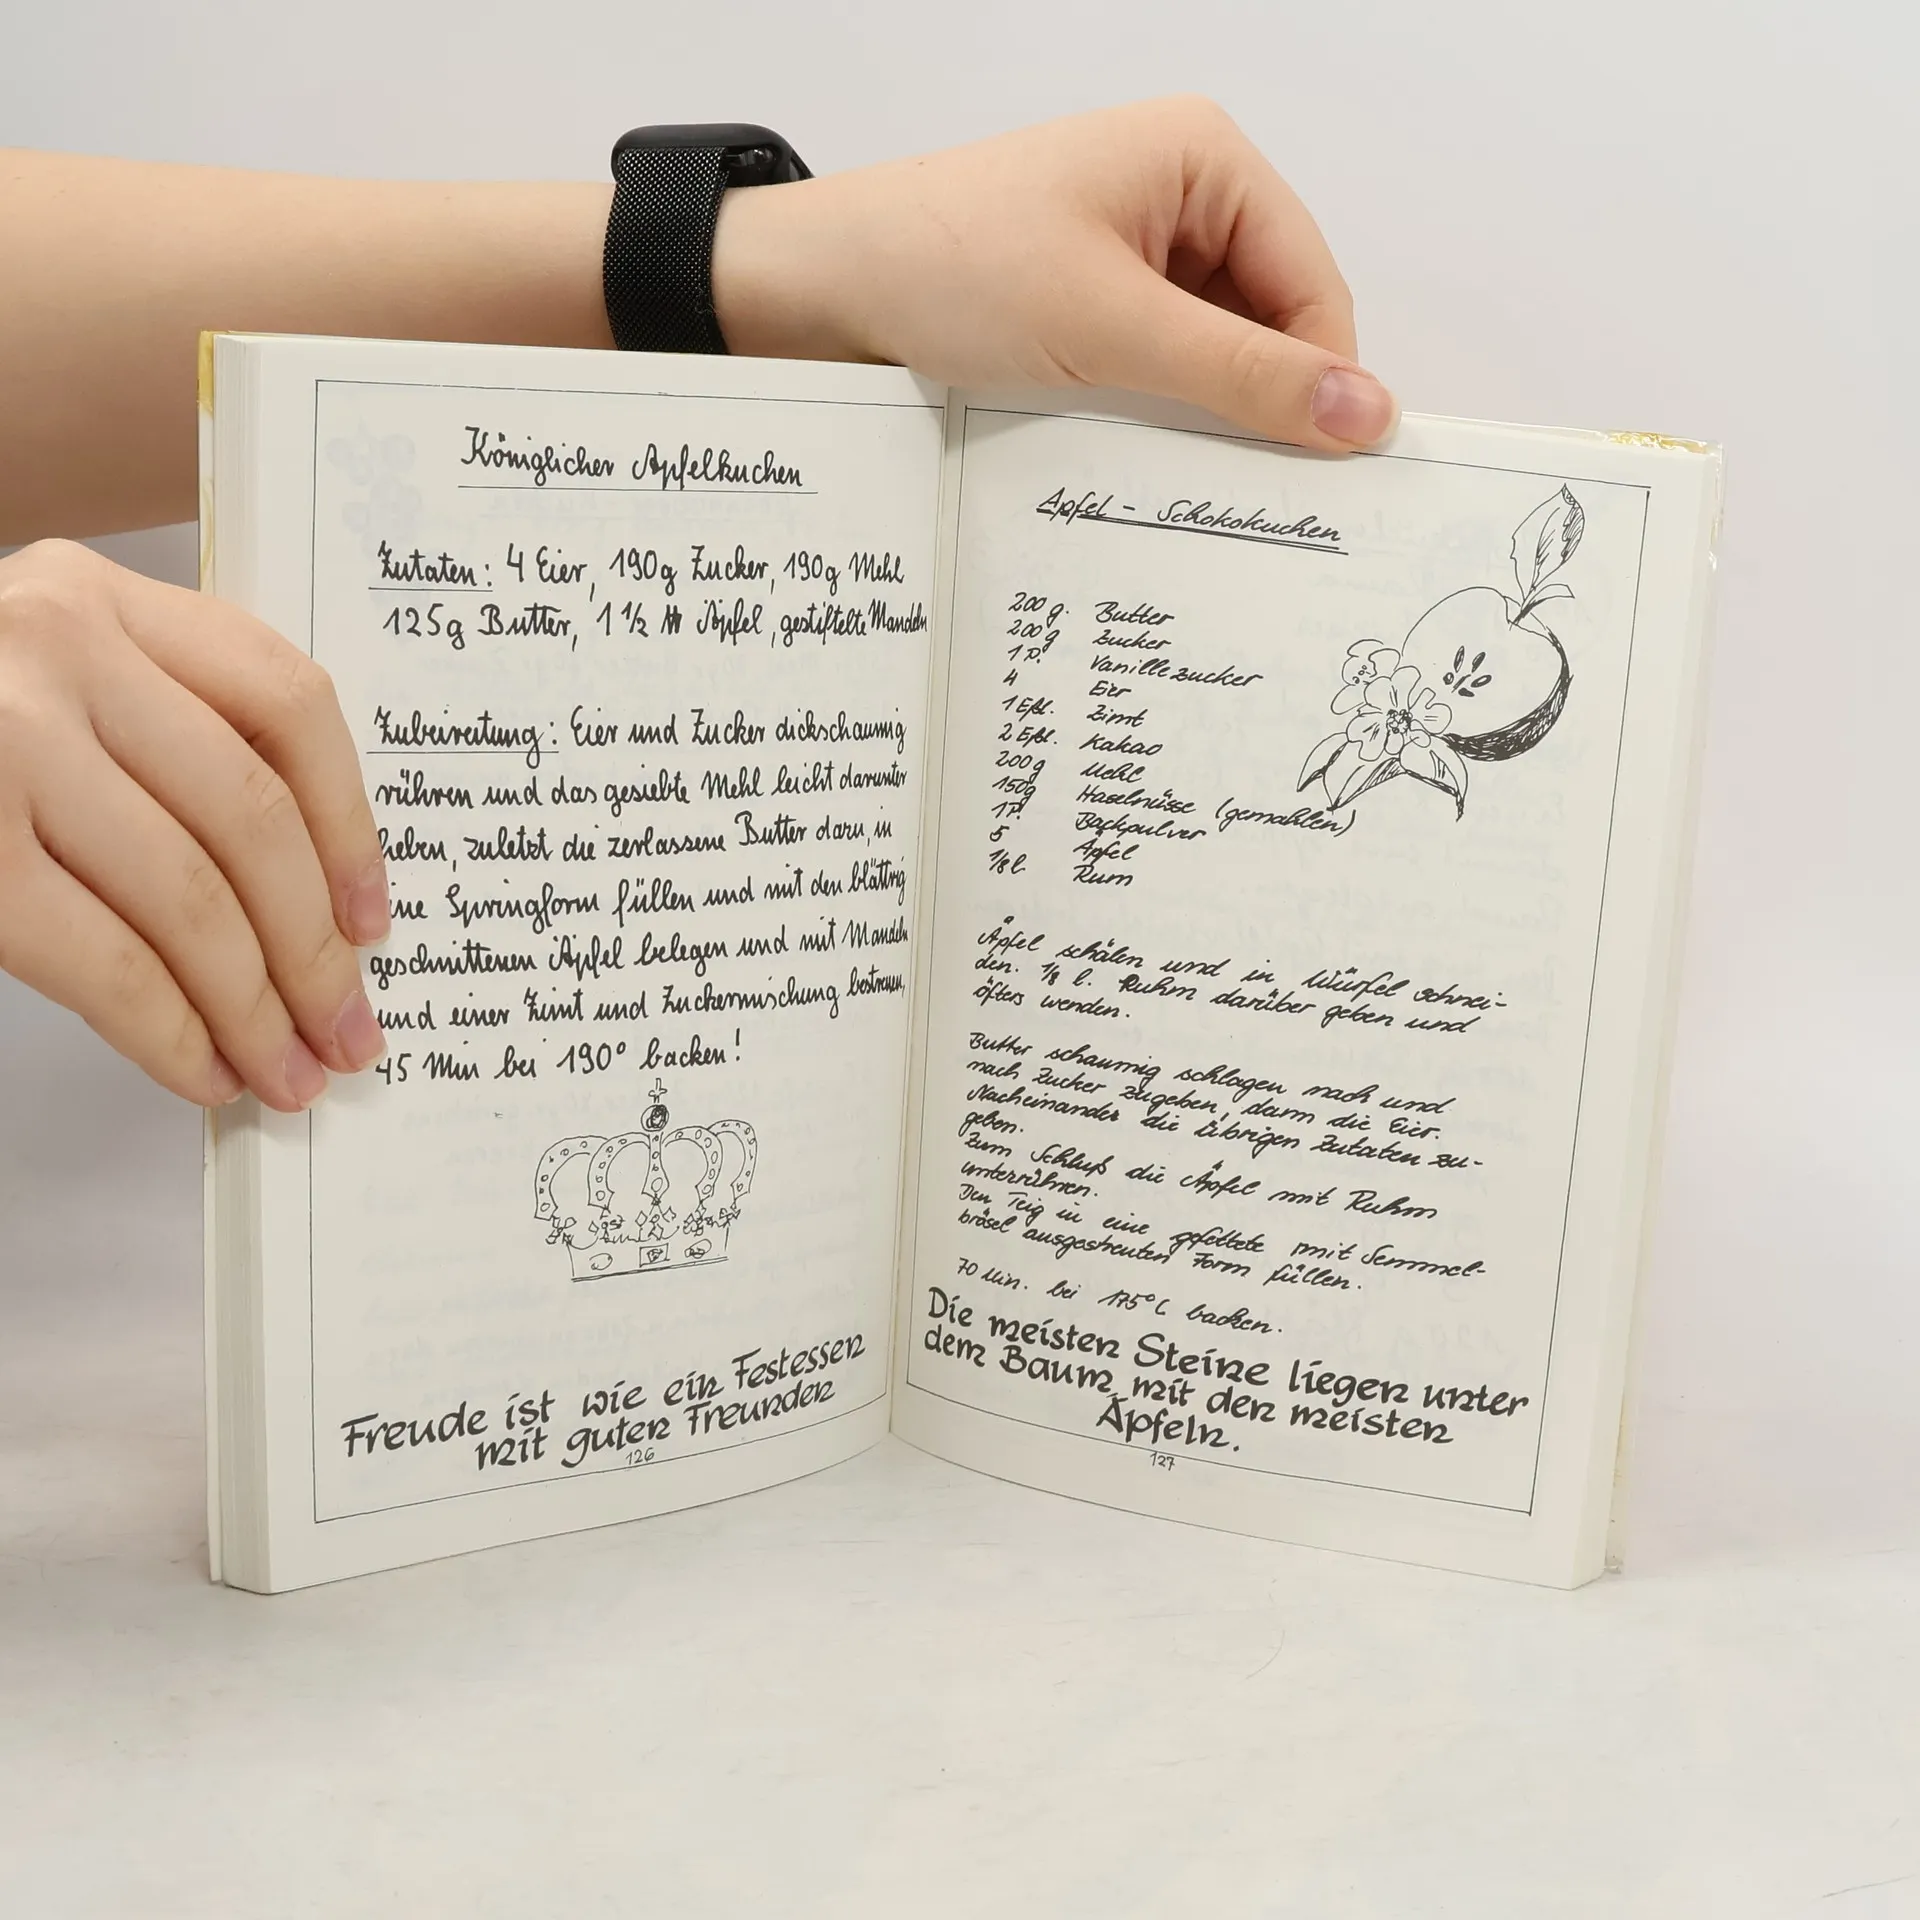 Königlicher Apfelkuchen
Zutaten: 4 Eier, 190g Zucker, 190g Mehl
125g Butter, 1 1/2 Äpfel, gestiftelte Mandeln
Zubereitung: Eier und Zucker dickschaumig
rühren und das gesiebte Mehl leicht darunter
heben, zuletzt die zerlassene Butter dazu, in
ine Springform füllen und mit den blättrig
geschnittenen Äpfel belegen und mit Mandeln
und einer Zimt und Zuckermischung bestreuen,
45 Min bei 190° backen!
Freude ist wie ein Festessen
mit guten Freunden
126
Apfel - Schokokuchen
200 g. Butter
200 g Zucker
1 P. Vanillezucker
4 Eier
1 Eßl. Zimt
2 Eßl. Kakao
200 g Mehl
150g Haselnüsse (gemahlen)
1 P. Backpulver
5 Äpfel
1/8 l. Rum
Äpfel schälen und in Würfel schnei-
den. 1/8 l. Ruhm darüber geben und
öfters wenden.
Butter schaumig schlagen nach und
nach Zucker zugeben, dann die Eier.
Nacheinander die übrigen Zutaten zu-
geben.
Zum Schluß die Äpfel mit Ruhm
unterrühren.
Den Teig in eine gefettete mit Semmel-
brösel ausgestreuten Form füllen.
70 Min. bei 175°C backen.
Die meisten Steine liegen unter
dem Baum mit den meisten
Äpfeln.
127